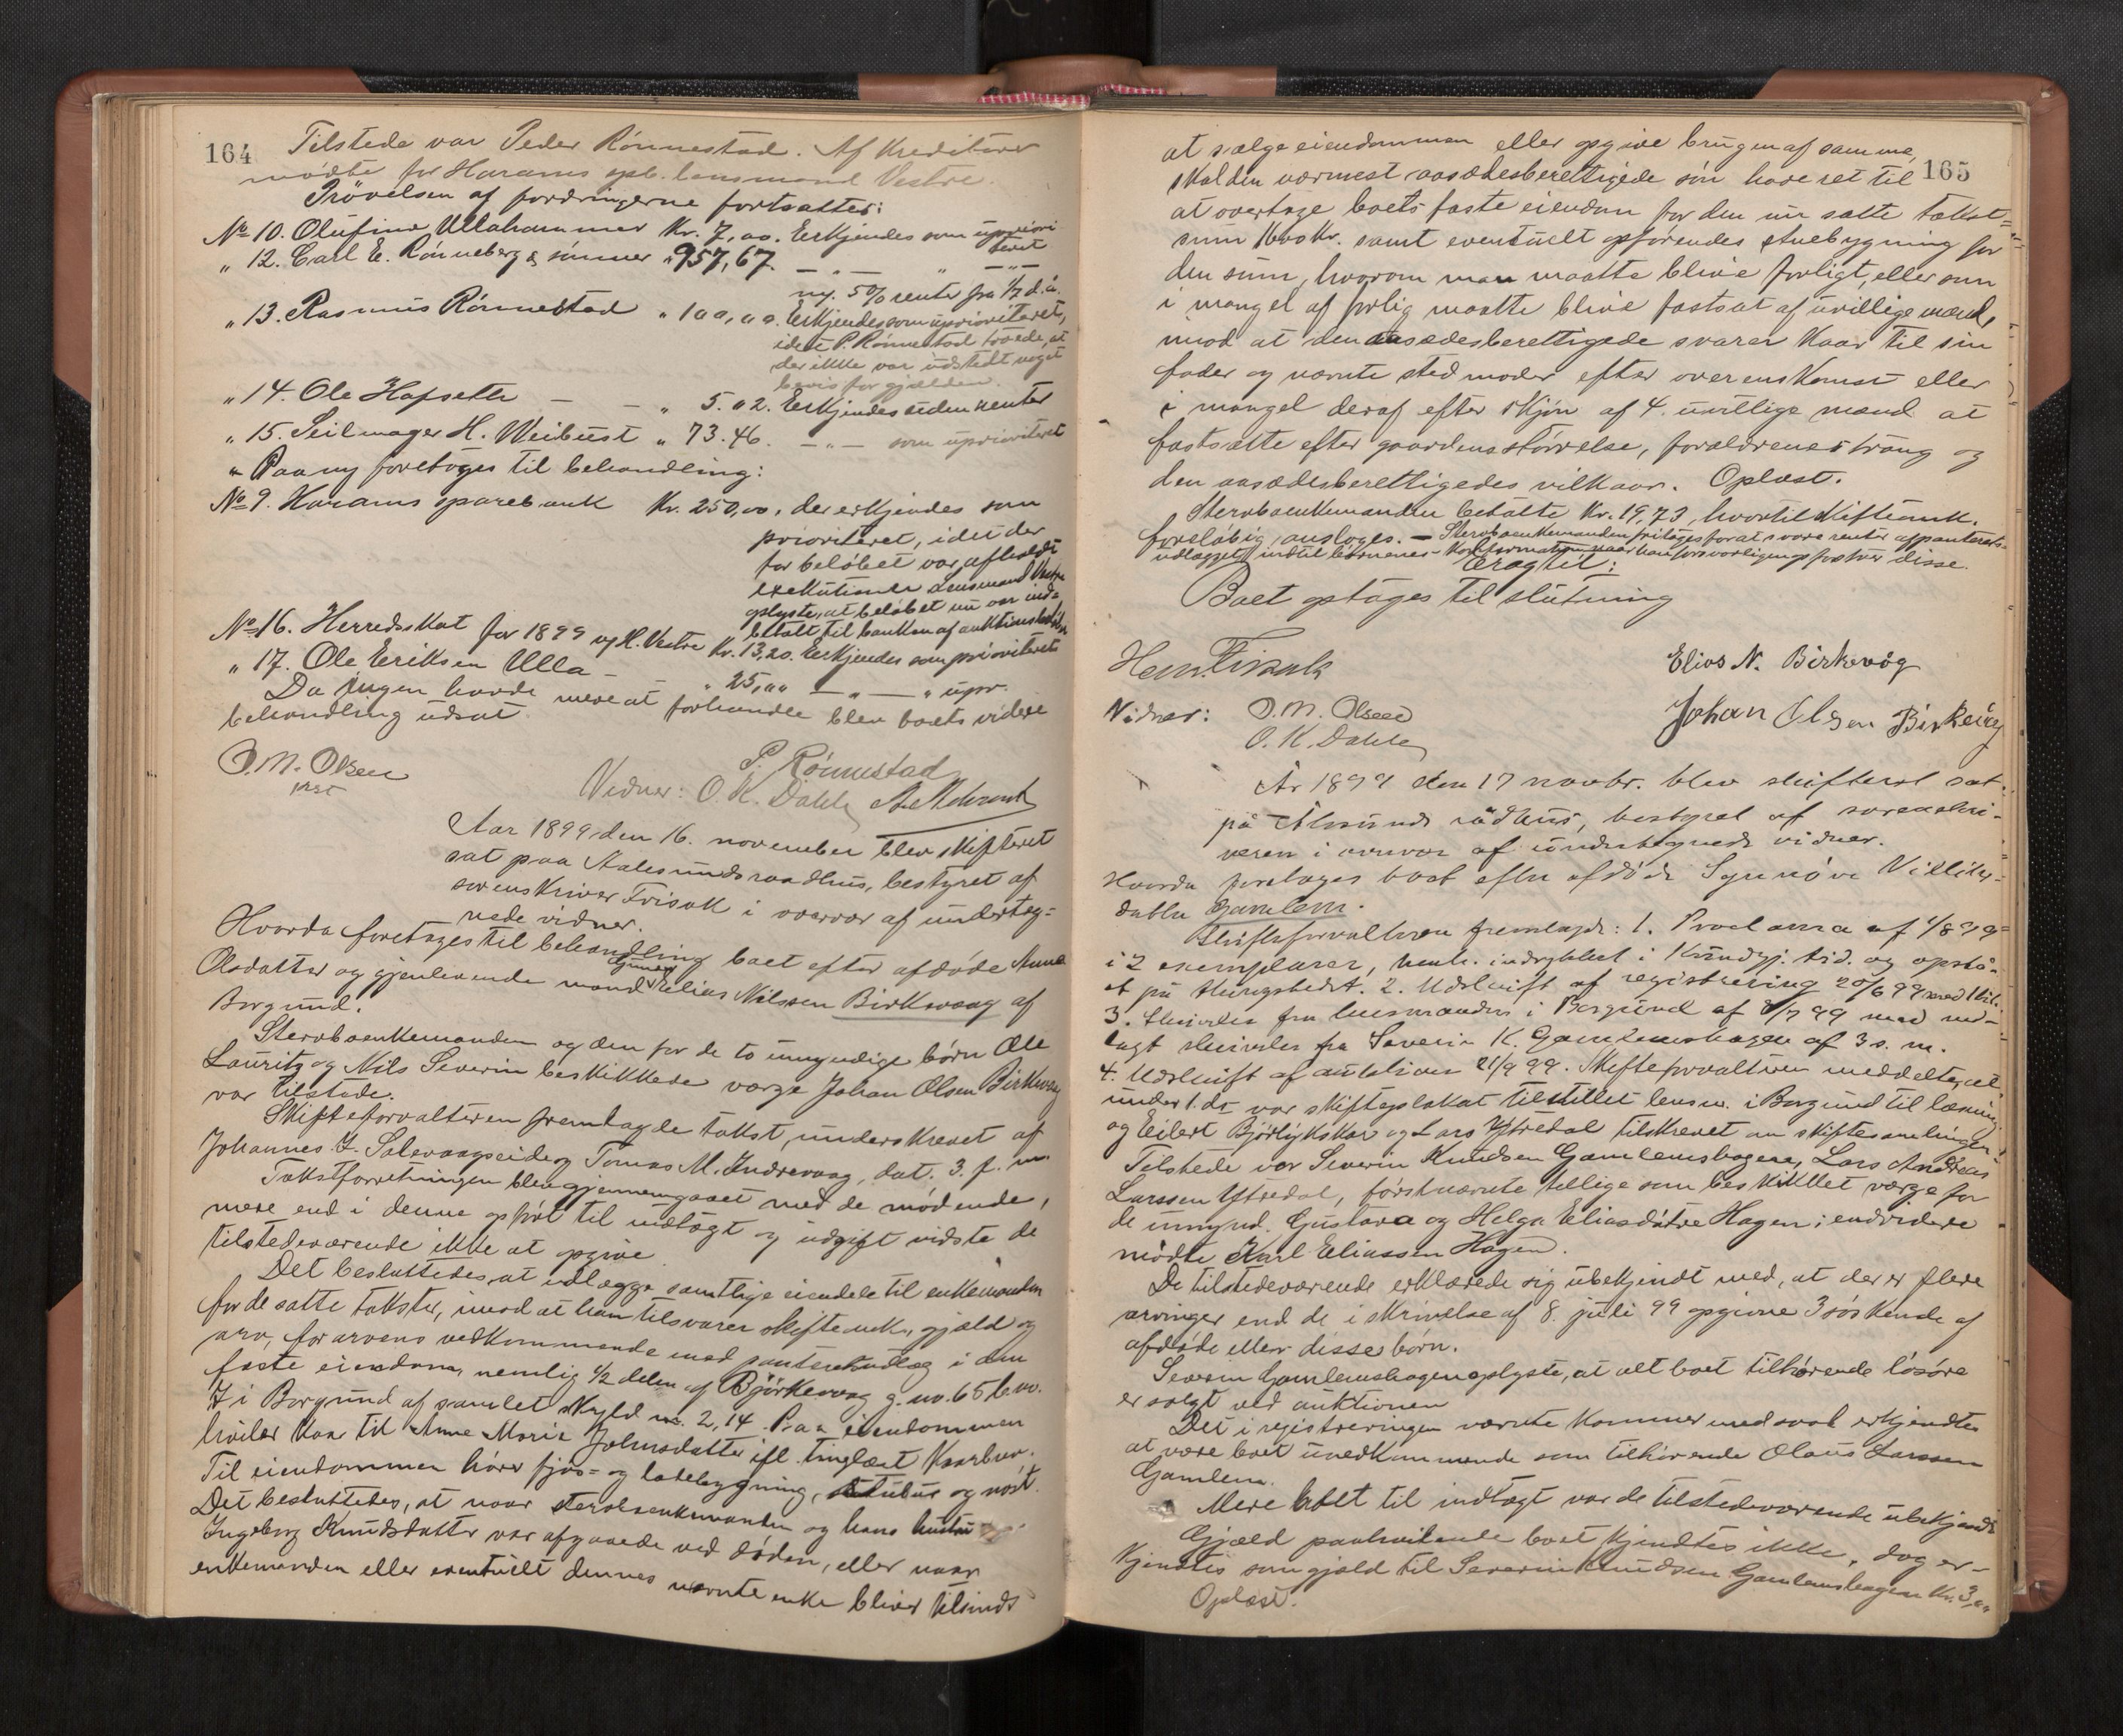 164
Tilstede var Peder Rønnestad. Af Kreditorer
mødte for Harams spb. lensmand Vestre.
Prövelsen af fordringerne fortsattes:
No 10. Olufine Ullahammer Kr. 7,00. Erkjendes som upriori
teret
" 12. Carl E. Rønneberg & sønner " 957,67. — " — " — " —
m. 5% renter fra 1/7 d. å.
" 13. Rasmus Rønnestad " 100,00. Erkjendes som uprioriteret,
idet P. Rønnestad troede, at
der ikke var udstedt noget
bevis for gjælden.
" 14. Ole Hofseth — — " 5.02. Erkjendes uden renter
" 15. Seilmager H. Weibust " 73.46. — " — som uprioriteret
" Paany foretoges til behandling:
No 9. Harams sparebank Kr. 250,00, der erkjendes som
prioriteret, idet der
for beløbet var afholdt
exekution. Lensmand Vestre
oplyste, at beløbet nu var ind-
betalt til banken af auktionsbeløbet
No 16. Herredsskat for 1899 v/ H. Vestre Kr. 13,20. Erkjendes som prioriteret
" 17. Ole Eriksen Ulla — " 25,00 — " — " upr.
Da ingen havde mere at forhandle blev boets videre
behandling udsat.
O. M. Olsen
P. Rønnestad
Vidner: O. K. Dahle
Aar 1899 den 16. november blev skifteret
sat paa Aalesunds raadhus, bestyret af
sorenskriver Frisak i overvær af underteg-
nede vidner.
Hvorda foretoges til behandling boet efter afdøde Anne
Olsdatter og gjenlevende mand Elias Nilssen Birkevaag af
Borgund.
Sterboenkemanden og den for de to umyndige børn Ole
Lauritz og Nils Severin beskikkede værge Johan Olsen Birkevaag
var tilstede.
Skifteforvalteren fremlagde takst, underskrevet af
Johannes J. Solevaagseide og Tomas M. Indrevaag, dat. 3. f. m.
Takstforretningen blev gjennemgaaet med de mødende,
mere end i denne opført til indtægt og udgift vidste de
tilstedeværende ikke at opgive.
Det besluttedes, at udlægge samtlige eiendele til enkemanden
for de satte takster, imod at han tilsvarer skifteomk., gjæld og
arv, for arvens vedkommende med panteretsudlæg i den
faste eiendom, nemlig 1/2 delen af Björkevaag g. no. 65 b. no.
7 i Borgund af samlet skyld m. 2,14. Paa eiendommen
hviler kaar til Anne Marie Johnsdatter ifl. tinglæst kaarbrev.
Til eiendommen hører fjøs- og ladebygning, stubus og nøst.
Det besluttedes, at naar sterboenkemanden og hans hustru
Ingeborg Knudsdatter var afgaaede ved døden, eller naar
enkemanden eller eventuelt dennes nævnte enke bliver tilsinds
165
at sælge eiendommen eller opgive brugen af samme,
skal den nærmest aasædesberettigede søn have ret til
at overtage boets faste eiendom for den nu satte takst-
sum 1600 kr. samt eventuelt opførendes stuebygning for
den sum, hvorom man maatte blive forligt, eller som
i mangel af forlig maatte blive fastsat af uvillige mænd,
mod at den aasædesberettigede svarer kaar til sin
fader og nævnte stedmoder efter overenskomst eller
i mangel deraf efter skjøn af 4. uvillige mænd at
fastsætte efter gaardens størrelse, forældrenes trang og
den aasædesberettigedes vilkaar. Oplæst.
Sterboenkemanden betalte Kr. 19,73, hvortil skifteomk.
foreløbig ansloges. — Sterboenkemanden fritages for at svare renter af panterets-
udlægget indtil børnenes konfirmation naar han forsvarligen opfostrer disse.
Eragtet:
Boet optages til slutning
Hen. Frisak
Elias N. Birkevåg
Vidner: O. M. Olsen
Johan Olsen Birkevåg
O. K. Dahle
År 1899 den 17 novbr. blev skifteret sat
på Ålesunds rådhus, bestyret af sorenskri-
veren i overvær af undertegnede vidner.
Hvorda foretoges boet efter afdøde Synnöve Nilsdatter
Gamlem.
Skifteforvalteren fremlagde: 1. Proclama af 1/8 99
i 2 exemplarer, henh. indrykket i Kundgj. tid. og opslå-
et på thingstedet. 2. Udskrift af registrering 20/6 99 med 1 bil.
3. Skrivelse fra lensmanden i Borgund af 8/7 99 med ved-
lagt skrivelse fra Severin K. Gamlemshagen af 3 s. m.
4. Udskrift af auktion 21/9 99. Skifteforvalteren meddelte, at
under 1. ds var skifteplakat tilstillet lensm. i Borgund til læsning
og Eilert Bjørlykskar og Lars Ytredal tilskrevet om skiftesamlingen.
Tilstede var Severin Knudsen Gamlemshagen, Lars Andreas
Larssen Ytredal, førstnævnte tillige som beskikket værge for
de umynd. Gustava og Helga Eliasdøtre Hagen; endvidere
mødte Karl Eliassen Hagen.
De tilstedeværende erklærede sig ubekjendt med, at der er flere
arvinger end de i skrivelse af 8. juli 99 opgivne 3 søskende af
afdøde eller disses børn.
Severin Gamlemshagen oplyste, at alt boet tilhørende løsøre
er solgt ved auktionen
Det i registreringen nævnte kammer med svol erkjendtes
at være boet uvedkommende som tilhørende Olaus Larssen
Gamlem.
Mere boet til indtægt var de tilstedeværende ubekjendt
Gjæld paahvilende boet kjendtes ikke, dog er-
kjendtes som gjæld til Severin Knudsen Gamlemshagen Kr. 3,00
Oplæst.